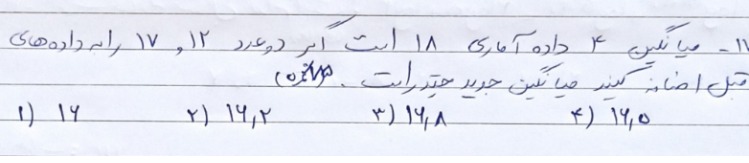 ۱۱- میانگین ۴ داده آماری ۱۸ است اگر دو عدد ۱۲ و ۱۷ را به داده های
قبل اضافه کنید میانگین جدید چقدر است.
۱) ۱۶ ۲) ۱۶,۲ ۳) ۱۶,۸ ۴) ۱۶,۵